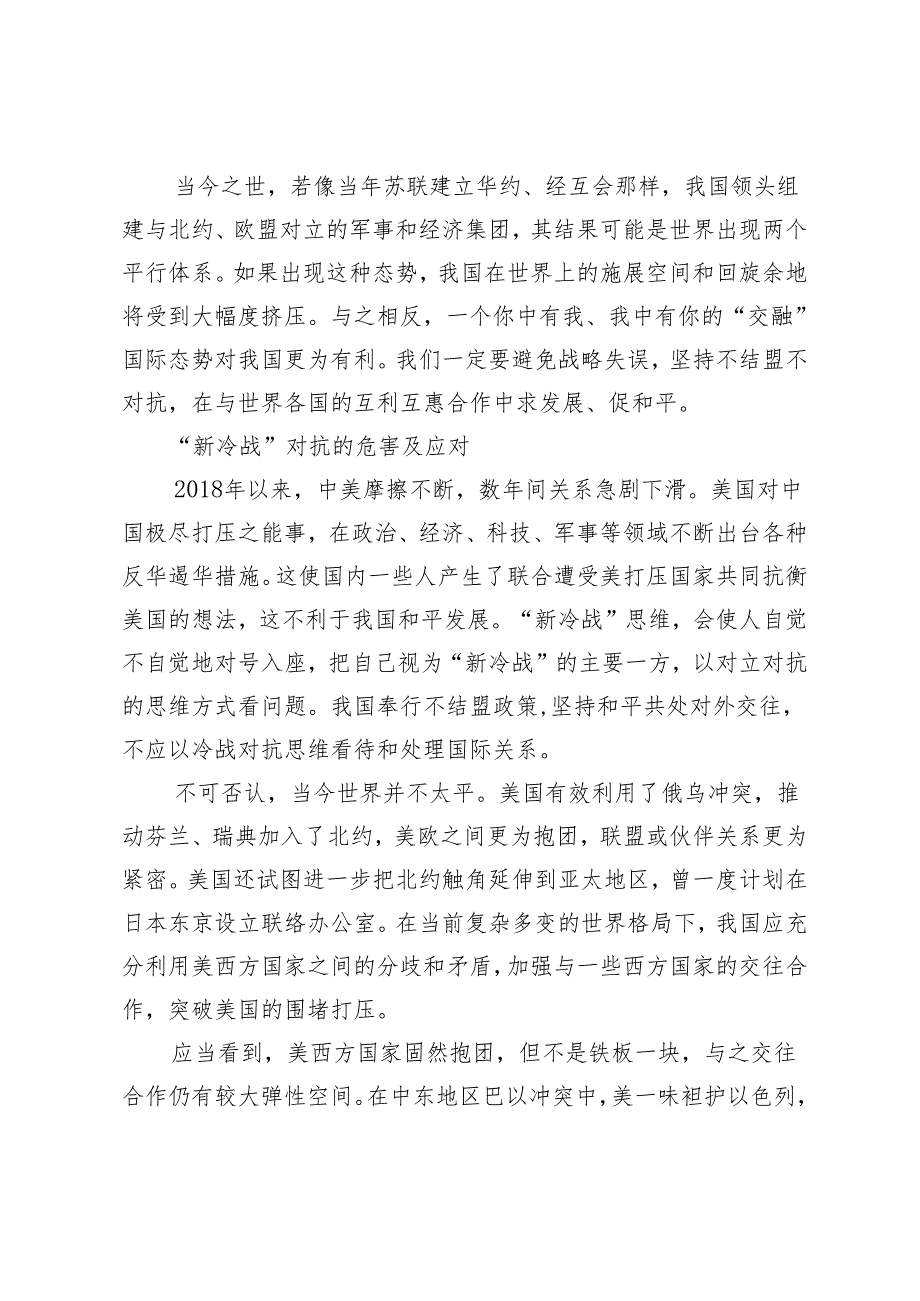 当今之世，若像当年苏联建立华约、经互会那样，我国领头组
建与北约、欧盟对立的军事和经济集团，其结果可能是世界出现两个
平行体系。如果出现这种态势，我国在世界上的施展空间和回旋余地
将受到大幅度挤压。与之相反，一个你中有我、我中有你的“交融”
国际态势对我国更为有利。我们一定要避免战略失误，坚持不结盟不
对抗，在与世界各国的互利互惠合作中求发展、促和平。
“新冷战”对抗的危害及应对
2018年以来，中美摩擦不断，数年间关系急剧下滑。美国对中
国极尽打压之能事，在政治、经济、科技、军事等领域不断出台各种
反华遏华措施。这使国内一些人产生了联合遭受美打压国家共同抗衡
美国的想法，这不利于我国和平发展。“新冷战”思维，会使人自觉
不自觉地对号入座，把自己视为“新冷战”的主要一方，以对立对抗
的思维方式看问题。我国奉行不结盟政策,坚持和平共处对外交往，
不应以冷战对抗思维看待和处理国际关系。
不可否认，当今世界并不太平。美国有效利用了俄乌冲突，推
动芬兰、瑞典加入了北约，美欧之间更为抱团，联盟或伙伴关系更为
紧密。美国还试图进一步把北约触角延伸到亚太地区，曾一度计划在
日本东京设立联络办公室。在当前复杂多变的世界格局下，我国应充
分利用美西方国家之间的分歧和矛盾，加强与一些西方国家的交往合
作，突破美国的围堵打压。
应当看到，美西方国家固然抱团，但不是铁板一块，与之交往
合作仍有较大弹性空间。在中东地区巴以冲突中，美一味袒护以色列，